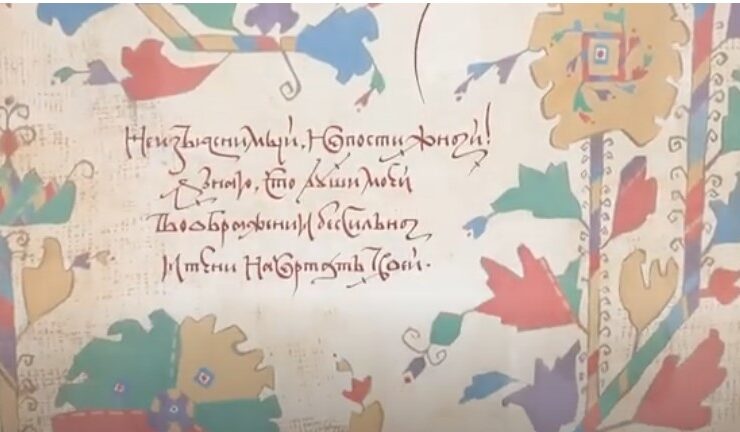 Неизъяснимый, Непостижный!
Я знаю, что души моей
Воображении бессильны
И тени начертать Твоей.